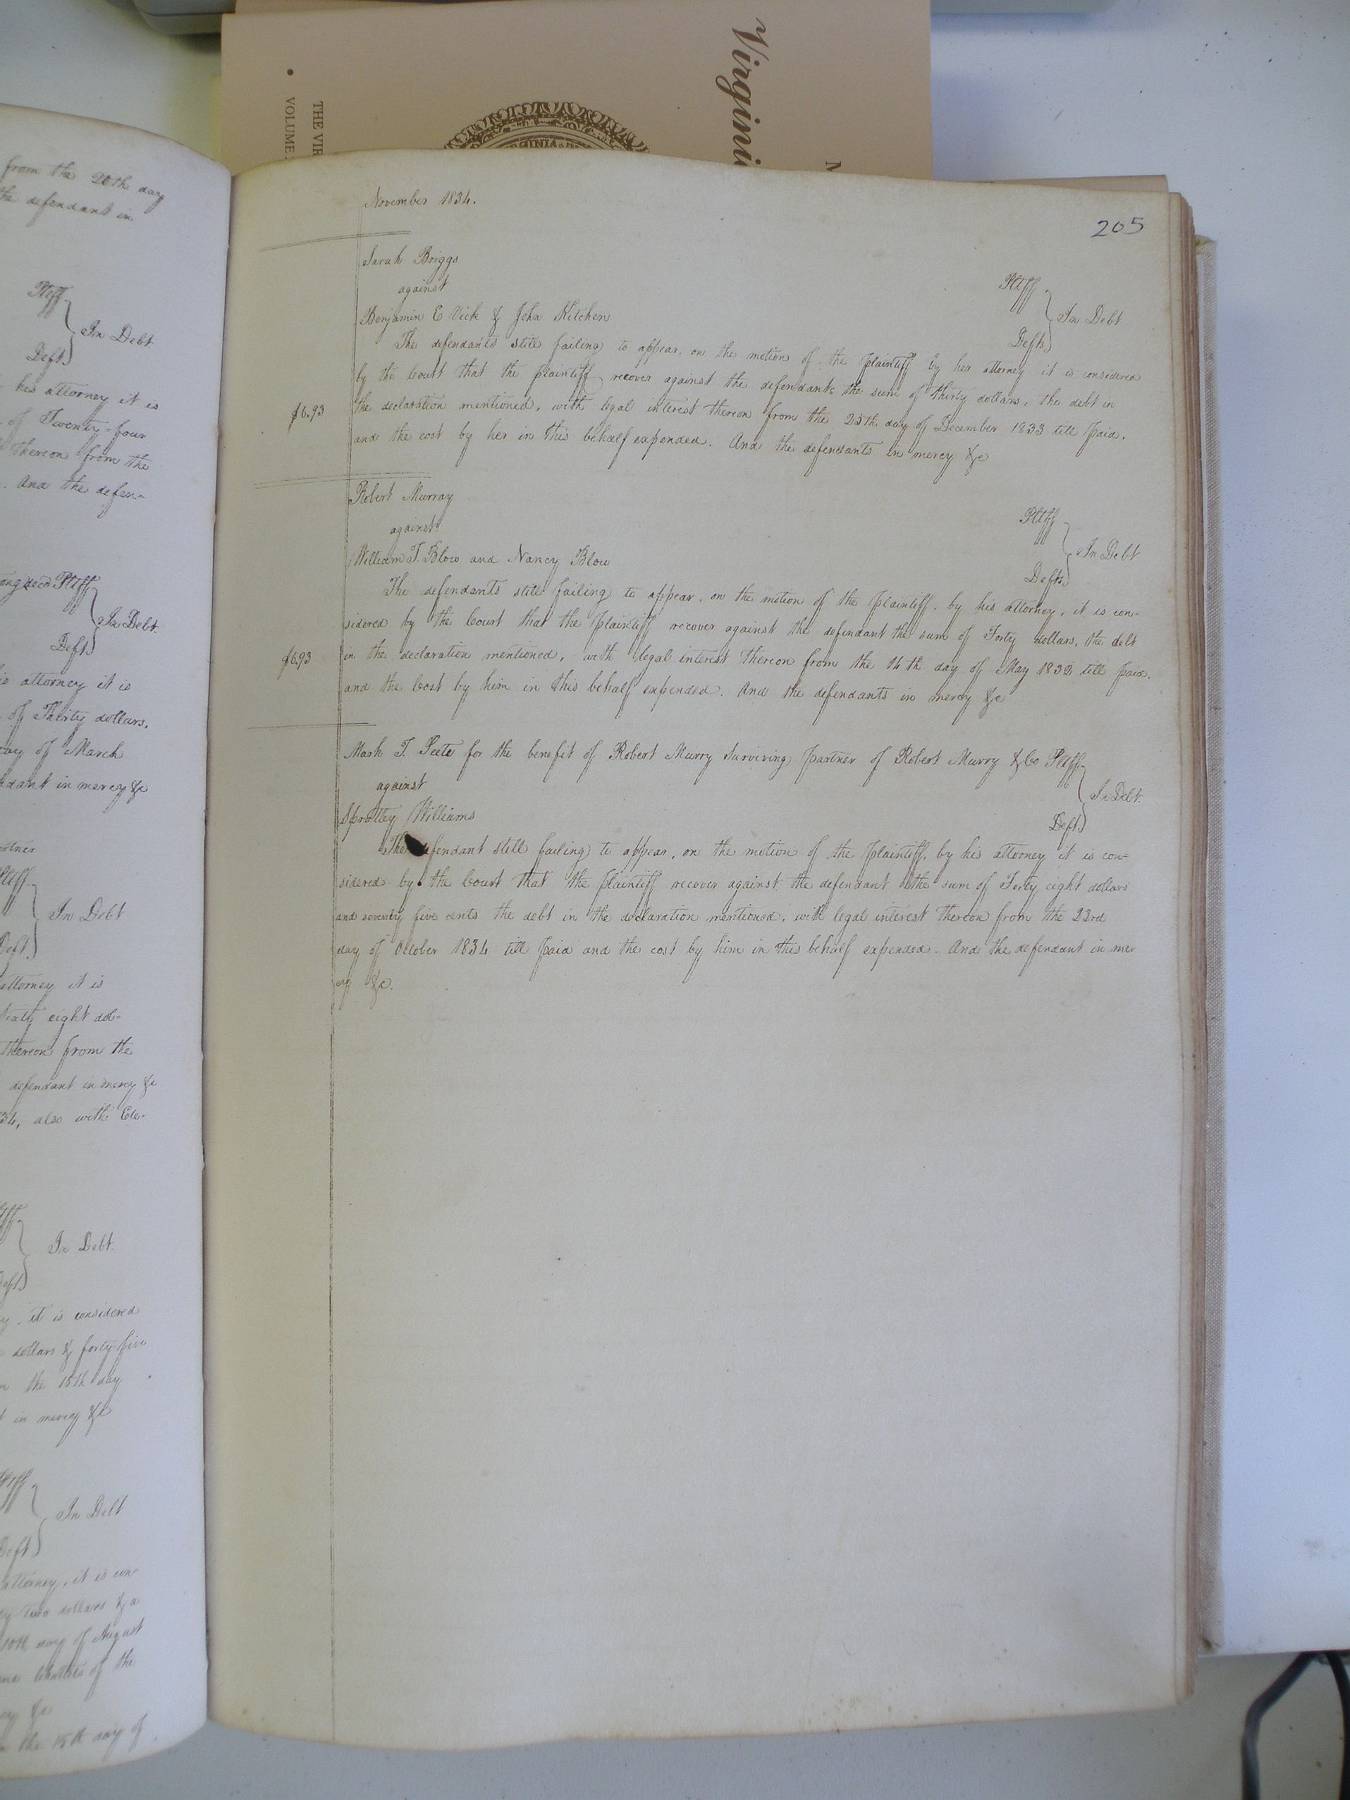 Virgini
THE VIR
VOLUME
from the 20th day
the defendant in
Pltff
In Debt
Deft
his attorney it is
of Twenty-four
thereon from the
And the defen-
Pltff
In Debt
Deft
attorney it is
of Thirty dollars,
day of March
in mercy &c
Pltff
In Debt
Deft
attorney it is
eight dol-
thereon from the
defendant in mercy &c
34, also with
In Debt
it is considered
dollars & forty five
the 15th day
in mercy &c
Pltff
In Debt
Deft
attorney, it is con-
two dollars &
10th day of August
of the
&c
the 15th day of
November 1834.
205
Sarah Briggs Pltff
against In Debt
Benjamin E Vick & John Kitchen Defts
The defendants still failing to appear, on the motion of the plaintiff by her attorney it is considered
by the Court that the plaintiff recover against the defendants the sum of thirty dollars, the debt in
$6.93 the declaration mentioned, with legal interest thereon from the 25th day of December 1833 till paid,
and the cost by her in this behalf expended. And the defendants in mercy &c
Robert Murray Pltff
against In Debt
William T. Blow and Nancy Blow Defts
The defendants still failing to appear, on the motion of the plaintiff, by his attorney, it is con-
sidered by the Court that the plaintiff recover against the defendant the sum of Forty dollars, the debt
$6.93 in the declaration mentioned, with legal interest thereon from the 14th day of May 1832 till paid,
and the Cost by him in this behalf expended. And the defendants in mercy &c
Mark T. Peete for the benefit of Robert Murry Surviving partner of Robert Murry & Co Pltff
against In Debt
Spratley Williams Deft
The defendant still failing to appear, on the motion of the plaintiff, by his attorney it is con-
sidered by the Court that the plaintiff recover against the defendant the sum of Forty eight dollars
and seventy five cents the debt in the declaration mentioned, with legal interest thereon from the 23rd
day of October 1834 till paid and the cost by him in this behalf expended. And the defendant in mer
cy &c.